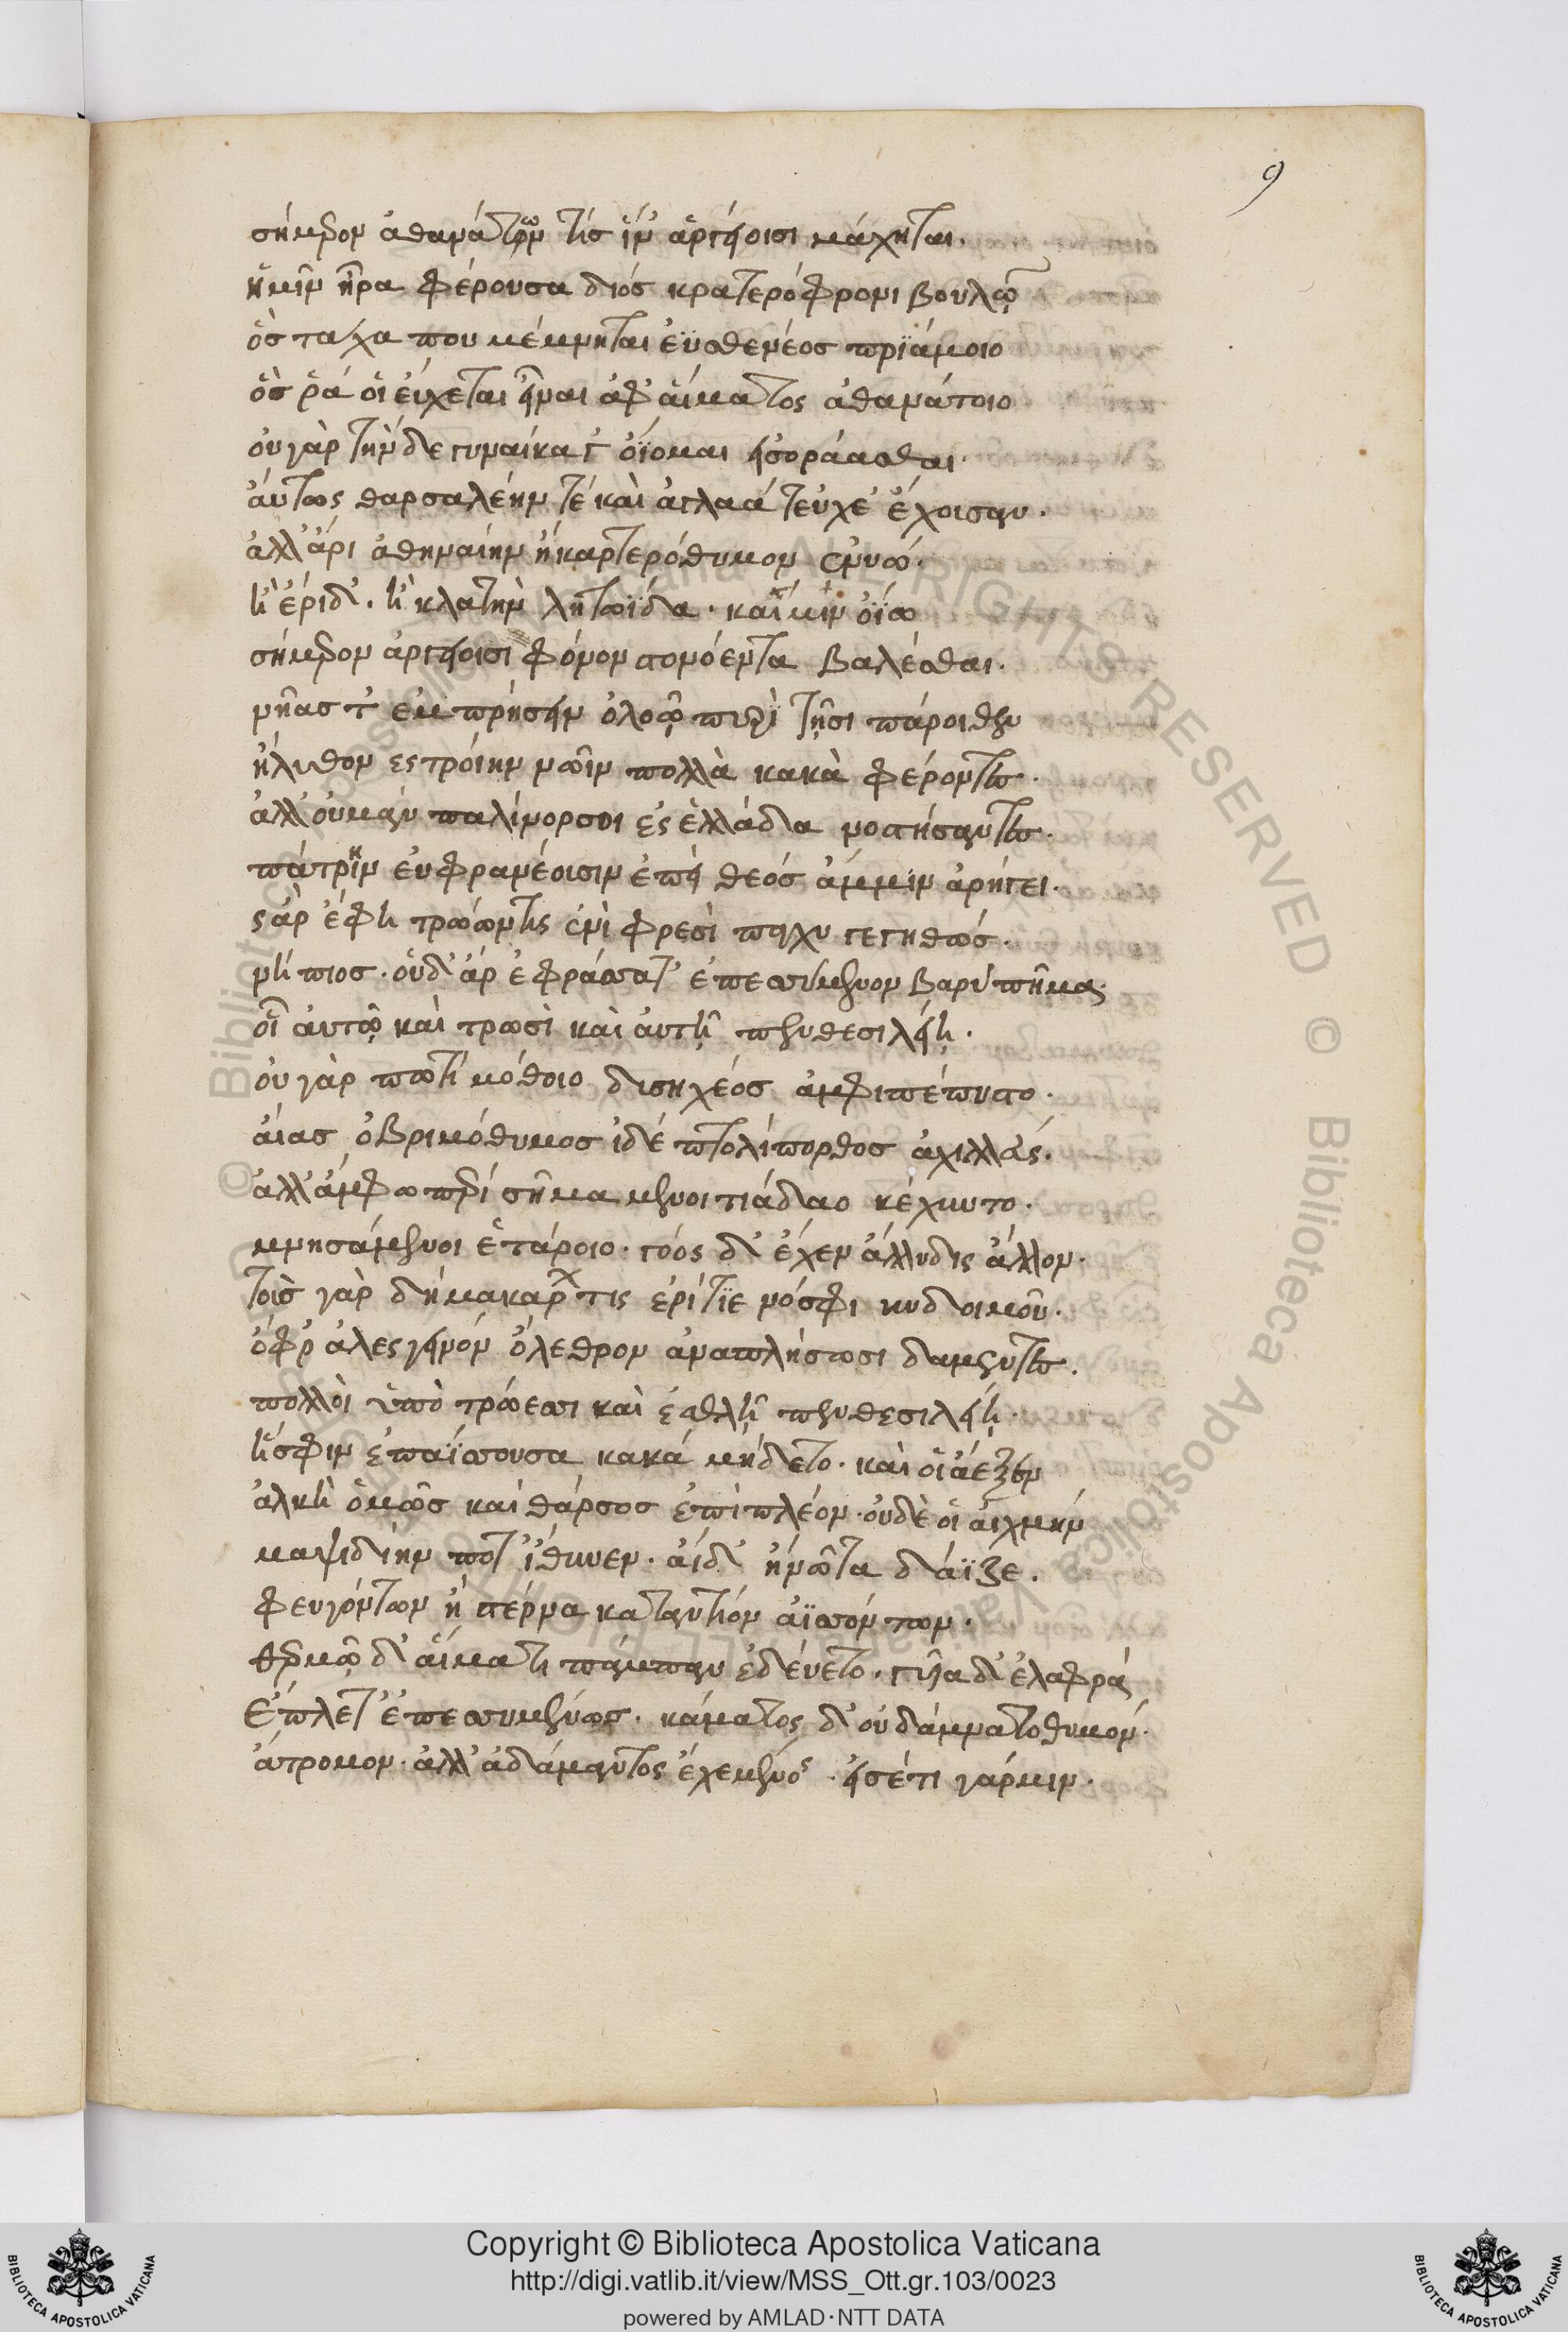 9
σήμερον ἀθανάτων τίς ἵν' ἀργείοισι μάχηται.
ἡμῖν ἦρα φέρουσα διός κρατερόφρονι βουλῇ
ὅς τάχα που μέμνηται ἐϋσθενέος πριάμοιο
ὅς ῥά οἱ εὔχεται εἶναι ἀφ' αἵματος ἀθανάτοιο
οὐ γὰρ τήνδε γυναῖκα γ' ὀΐομαι εἰσοράασθαι.
αὔτως θαρσαλέην τέ καὶ ἀγλαά τεύχε' ἔχουσαν.
ἀλλ' ἄρ' ἀθηναίην ἢ καρτερόθυμον ἐνυώ.
ἢ ἔριδ'. ἢ κλυτὴν λητωΐδα. καί μιν ὀΐω
σήμερον ἀργείοισι φόνον στονόεντα βαλέσθαι.
νῆας τ' ἐμπρήσειν ὀλοῷ πυρὶ τῇσι πάροιθεν
ἤλυθον ἐς τροίην νῶϊν πολλὰ κακὰ φέροντες.
ἀλλ' οὐ μὰν παλίνορσοι ἐς ἑλλάδα νοστήσαντες.
πάτρην εὐφρανέουσιν ἐπεὶ θεός ἄμμιν ἀρήγει.
ὣς ἄρ' ἔφη τρώων τις ἐνὶ φρεσὶ πάγχυ γεγηθώς.
νήπιος. οὐδ' ἄρ ἐφράσσατ' ἐπεσσύμενον βαρὺ πῆμα
οἷ αὐτῷ καὶ τρωσὶ καὶ αὐτῇ πενθεσιλείῃ.
οὐ γάρ πώ τι μόθοιο δυσηχέος ἀμφιπέπυστο.
αἴας ὀβριμόθυμος ἰδέ πτολίπορθος ἀχιλλεύς.
ἀλλ' ἄμφω περὶ σῆμα μενοιτιάδαο κέχυντο.
μνησάμενοι ἑτάροιο. γόος δ' ἔχεν ἄλλυδις ἄλλον.
τοὺς γὰρ δὴ μακάρων τις ἐρήτυε νόσφι κυδοιμοῦ.
ὄφρ' ἀλεγεινόν ὄλεθρον ἀναπλήσωσι δαμέντες.
πολλοὶ ὑπὸ τρώεσσι καὶ ἐσθλῇ πενθεσιλείῃ.
ἥ σφιν ἐπαΐσσουσα κακά μήδετο. καὶ οἱ ἀέξεν
ἀλκὴ ὁμῶς καὶ θάρσος ἐπὶ πλέον. οὐδὲ οἱ αἰχμήν
μαψιδίην ποτ' ἴθυνεν. αἰεὶ δ' ἢ νῶτα δάϊζε.
φευγόντων ἢ στέρνα καταντίον ἀϊσσόντων.
θερμῷ δ' αἵματι πάμπαν ἐδεύετο. γυῖα δ' ἐλαφρά
ἔπλετ' ἐπεσσυμένως. κάματος δ' οὐ δάμνατο θυμόν.
ἄτρομον. ἀλλ' ἀδάμαντος ἔχεν μένος. εἰσέτι γάρ μιν.
Copyright © Biblioteca Apostolica Vaticana
http://digi.vatlib.it/view/MSS_Ott.gr.103/0023
powered by AMLAD·NTT DATA